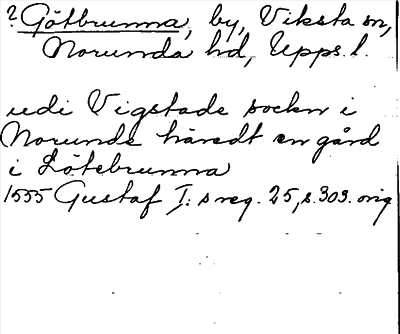 ? Götbrunna, by, Viksta sn,
Norunda hd, Upps. l.
udi Vigstade sockn i
Norunde häredt en gård
i Lötebrunna
1555 Gustaf I: s reg. 25, s. 303. orig